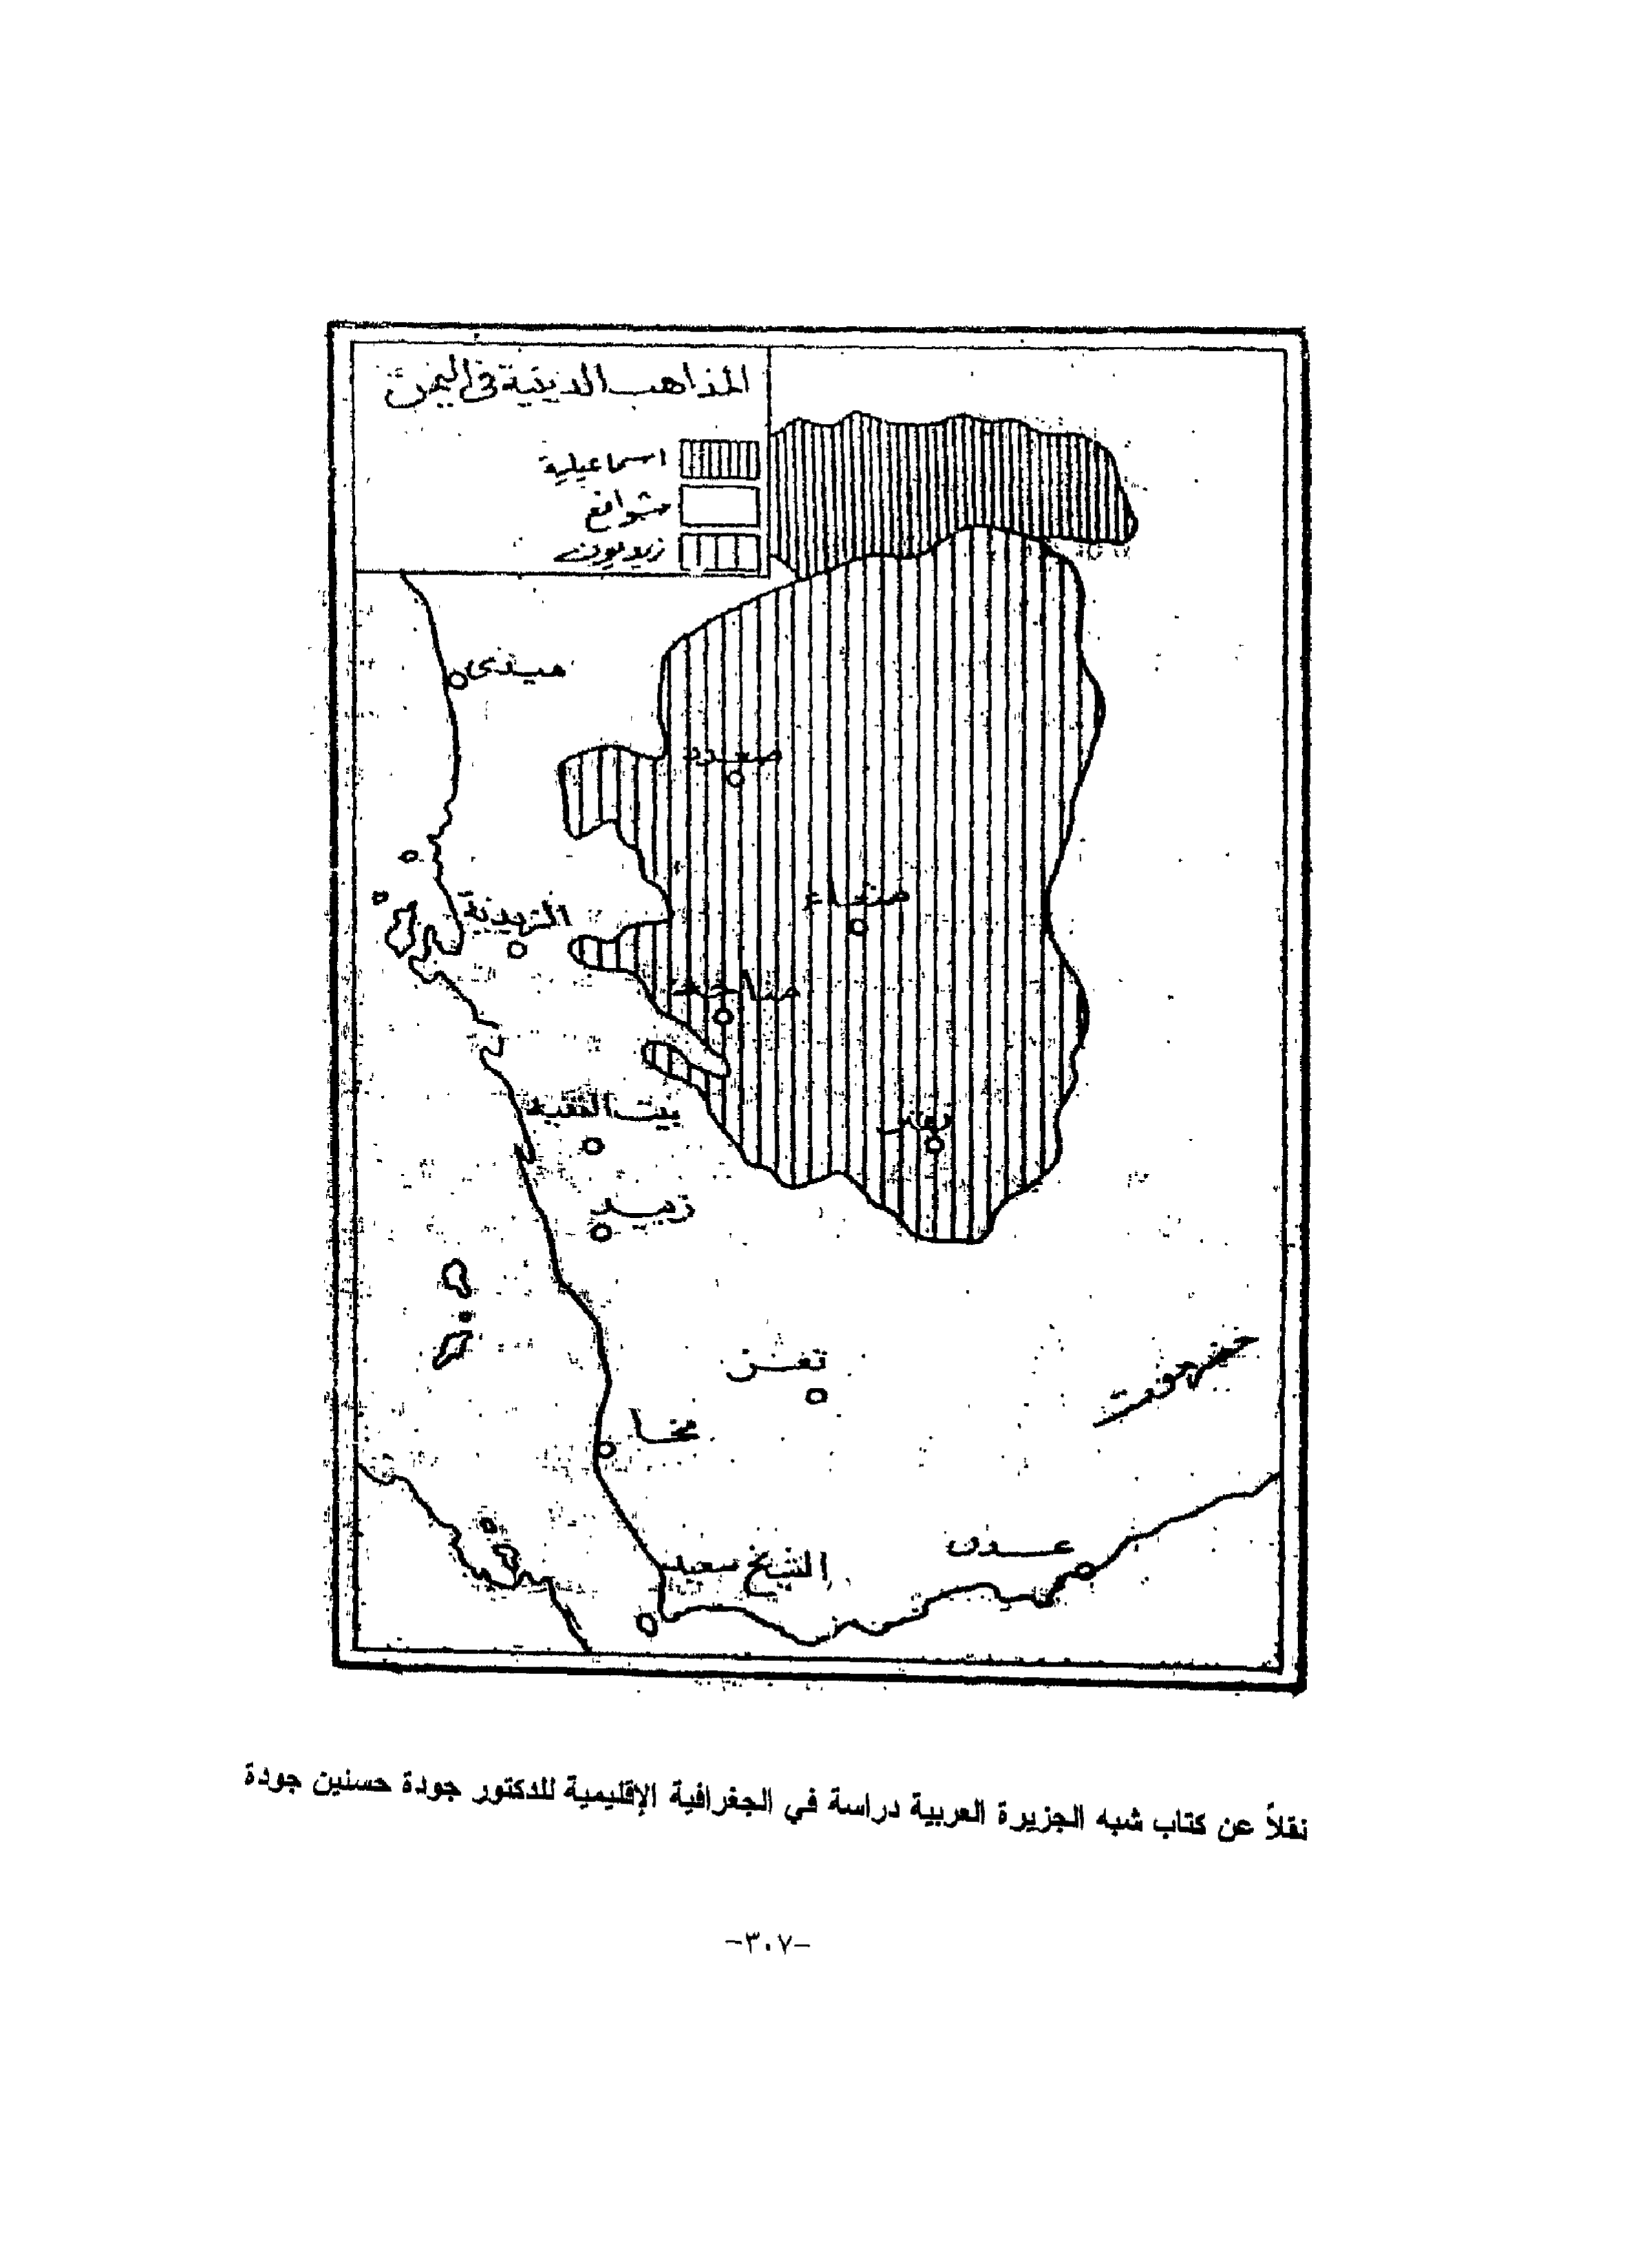 المذاهب الدينية فى اليمن
اسماعيلية
شوافع
زيديون
ميدى
صعدة
صنعاء
الزيدية
مناخة
بيت الفقيه
زبيد
تعز
حضرموت
مخا
عدن
الشيخ سعيد
نقلاً عن كتاب شبه الجزيرة العربية دراسة في الجغرافية الإقليمية للدكتور جودة حسنين جودة
-٣٠٧-